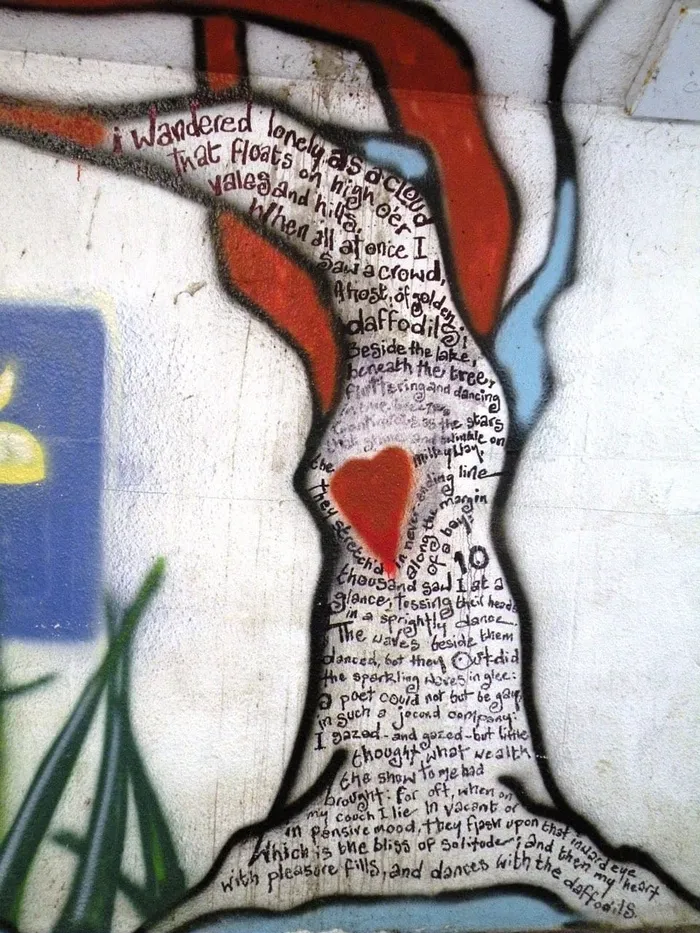 i wandered lonely as a cloud
that floats on high o'er
vales and hills,
When all at once I
saw a crowd,
A host, of golden
daffodils;
Beside the lake,
beneath the trees,
fluttering and dancing
in the breeze.
Continuous as the stars
that shine and twinkle on
the milky way,
They stretch'd in never ending line
along the margin
of a bay:
10
thousand saw I at a
glance, tossing their heads
in a sprightly dance
The waves beside them
danced, but they Out did
the sparkling waves in glee:
a poet could not but be gay,
in such a jocund company:
I gazed-and gazed-but little
thought what wealth
the show to me had
brought: for oft, when on
my couch I lie In vacant or
in pensive mood, they flash upon that inward eye
Which is the bliss of solitude; and then my heart
with pleasure fills, and dances with the daffodils.